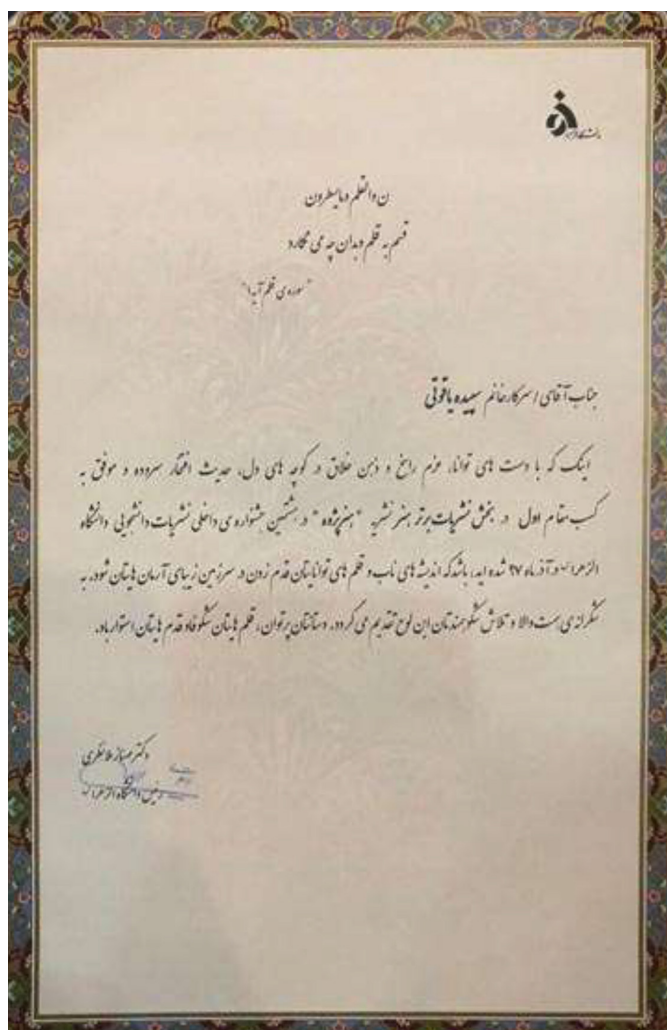 دانشگاه الزهرا
ن والقلم و مایسطرون
قسم به قلم و بدان چه می نگارد
"سوره ی قلم آیه ۱"
جناب آقای / سرکار خانم سپیده یاقوتی
اینک که با دست های توانا، عزم راسخ و ذهن خلاق در کوچه های دل، حدیث افتخار سروده و موفق به
کسب مقام اول در بخش نشریات برتر هنر نشریه "هنرپژوه" در هشتمین جشنواره ی داخلی نشریات دانشجویی دانشگاه
الزهرا در آذرماه ۹۷ شده اید، باشد که اندیشه های ناب و قلم های توانایتان قدم زدن در سرزمین زیبای آرمان هایتان شود. به
شکرانه ی همت والا و تلاش شکوهمندتان این لوح تقدیم می گردد. دستانتان پرتوان، قلم هایتان شکوفا و قدم هایتان استوار باد.
دکتر مهناز ملانظری
رئیس دانشگاه الزهرا